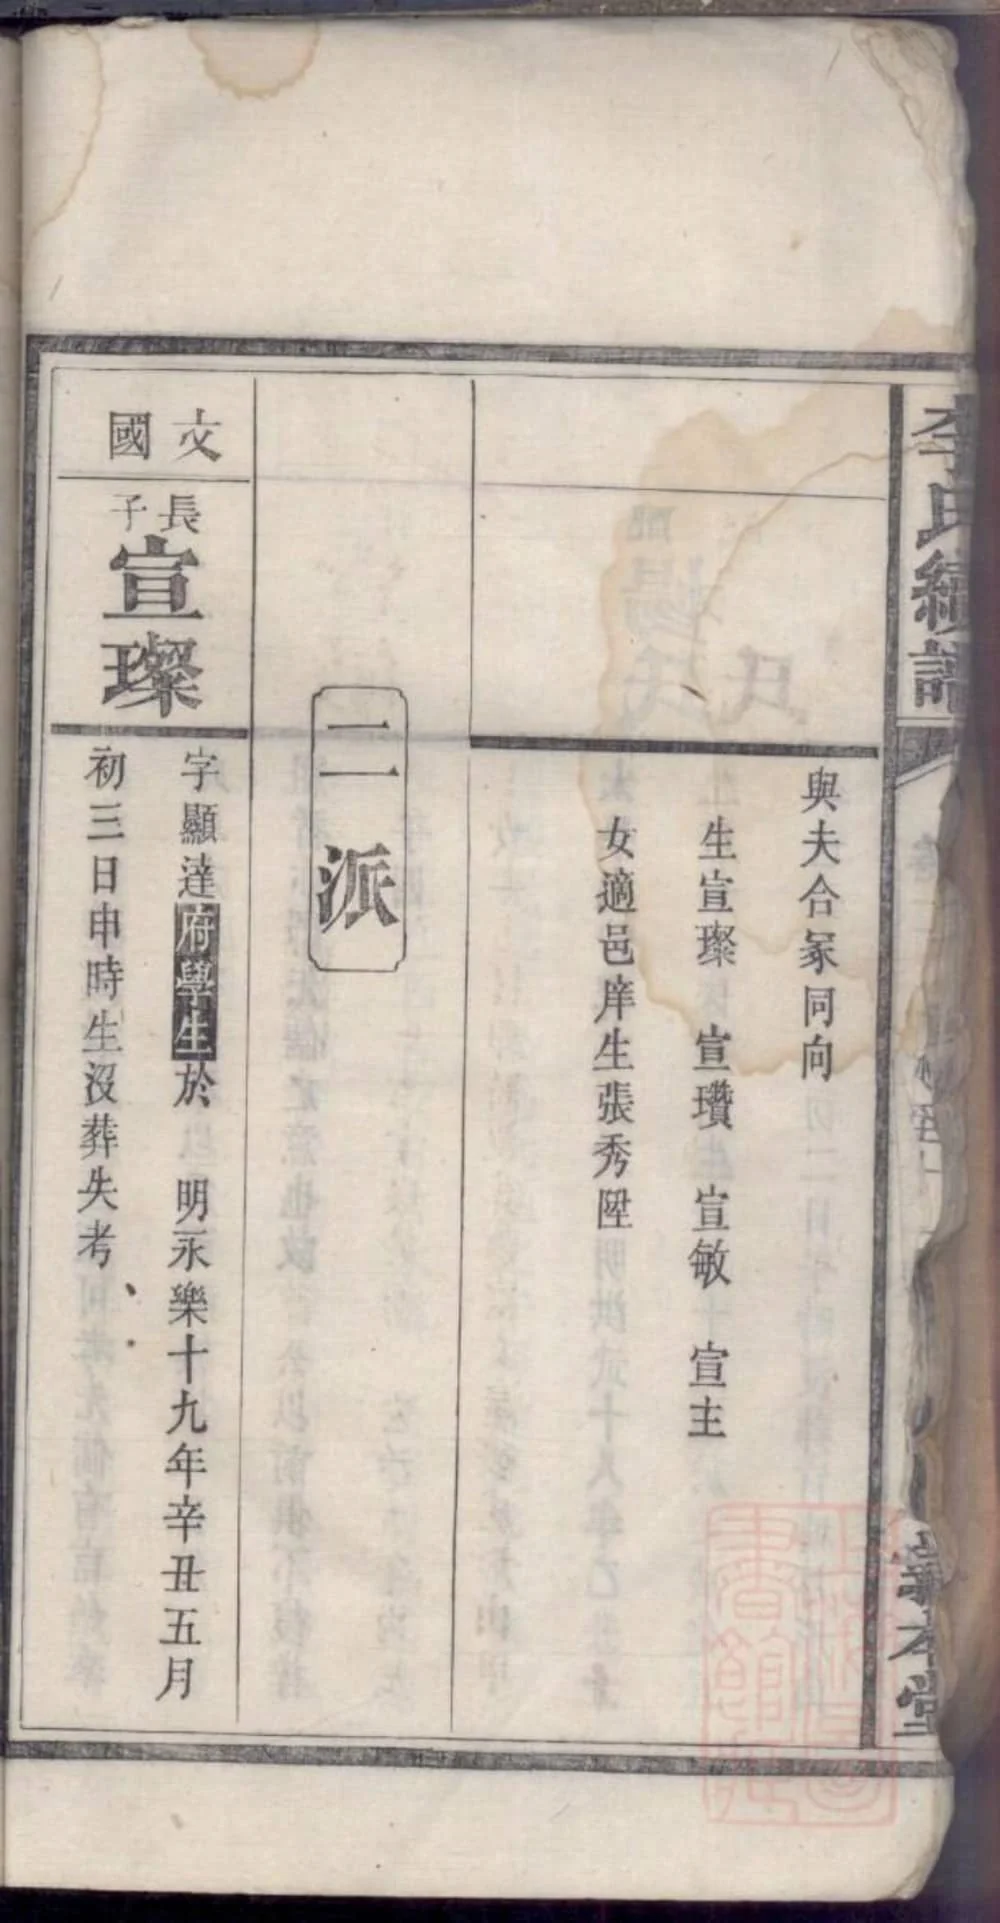 李氏續譜
敦本堂
與夫合冢同向
生宣璨 宣瓚 宣敏 宣主
女適邑庠生張秀陞
二派
文國
長子
宣璨
字顯達府學生於 明永樂十九年辛丑五月
初三日申時生沒葬失考